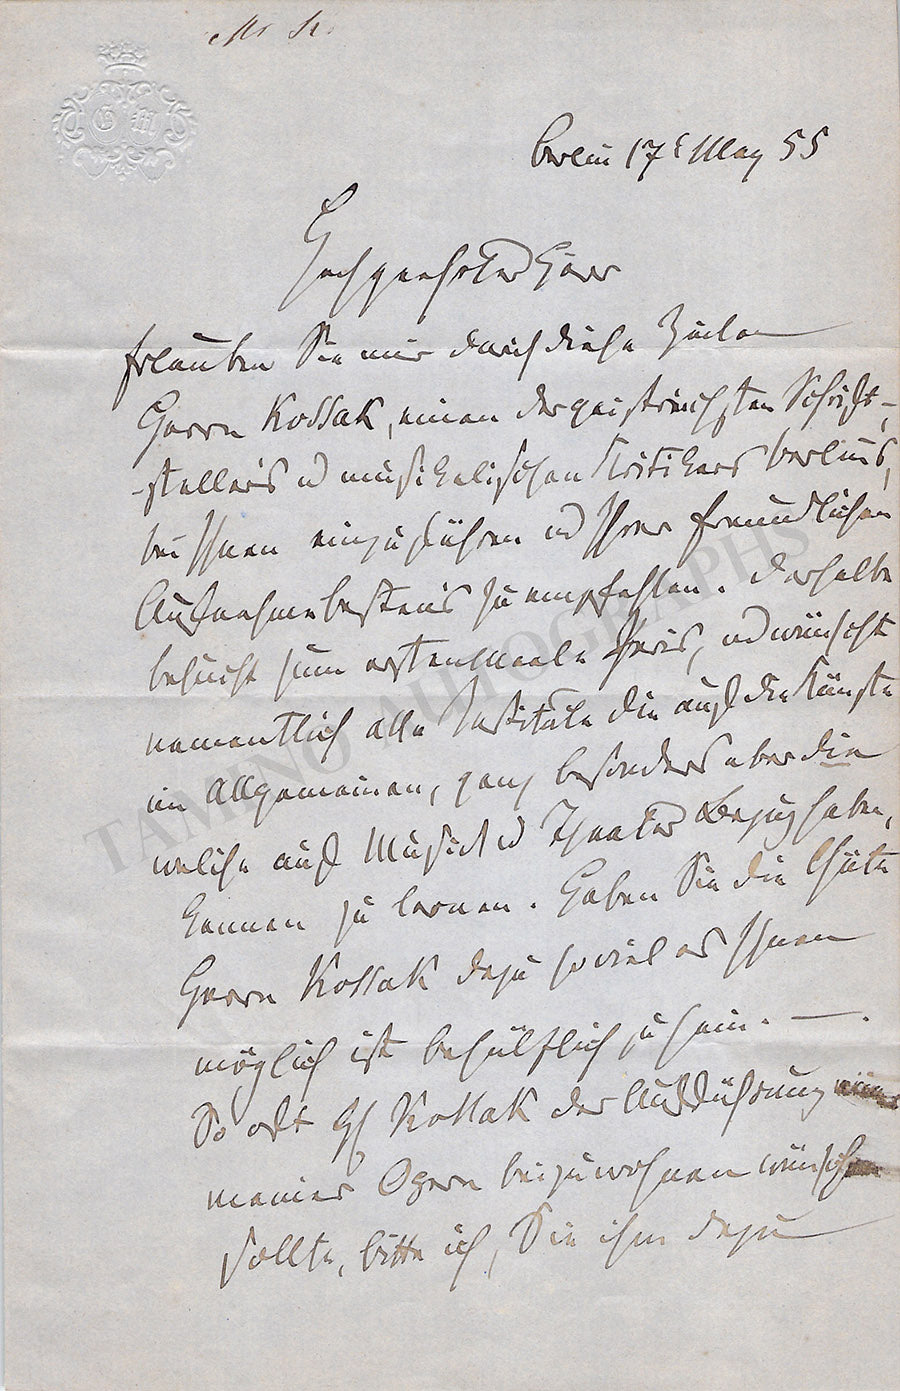 G M
Berlin 17t May 55
Hochgeehrter Herr
Erlauben Sie mir durch diese Zeilen
Herrn Kossak, einen der geistreichsten Schrift-
-stellers u musikalischen Kritikers Berlins,
bei Ihnen einzuführen u Ihrer freundlichen
Aufnahme bestens zu empfehlen. Derselbe
besucht zum erstenmale Paris, u wünscht
namentlich alle Institute die auf die Künste
im Allgemeinen, ganz besonders aber die
welche auf Musick u Theater Bezug haben,
kennen zu lernen. Haben Sie die Güte
Herrn Kossak dazu soviel es Ihnen
möglich ist behülflich zu sein. — .
So oft H Kossak der Aufführung
meiner Opern beizuwohnen wünschen
sollte, bitte ich, Sie ihm dazu
TAMINO AUTOGRAPHS